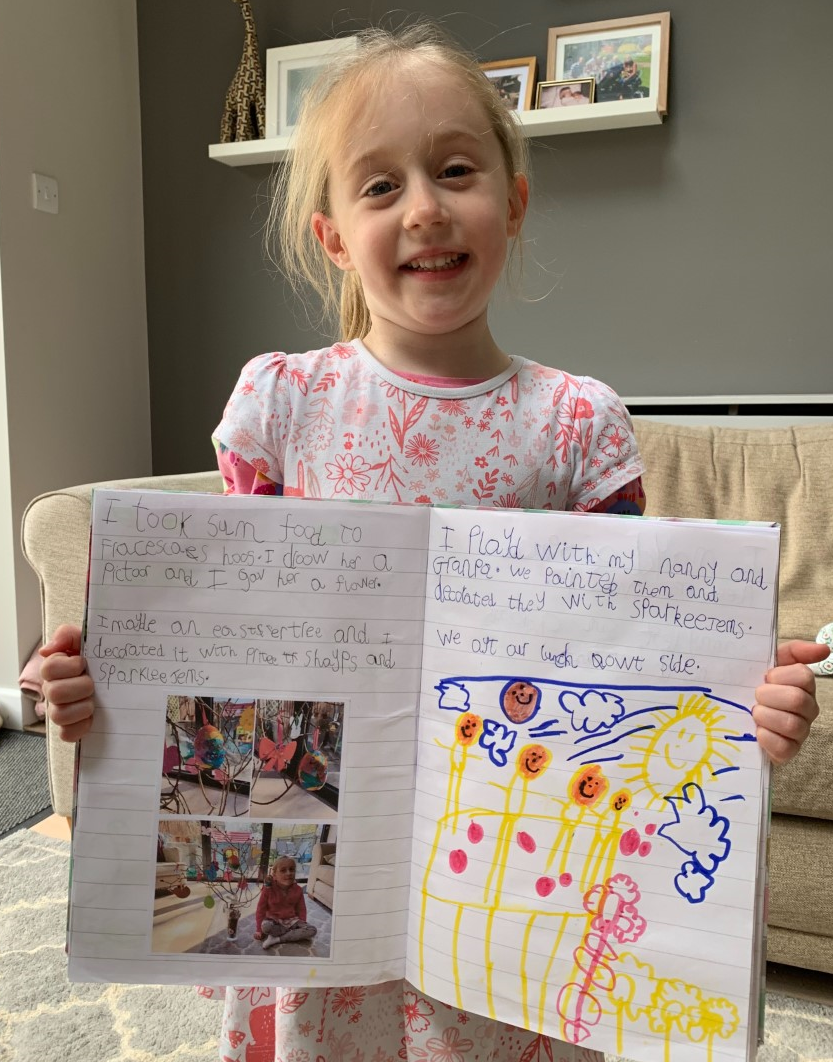 I took sum food to
Fracescaes hoos. I droow her a
Pictoor and I gav her a flower.
I madle an easterertree and I
decorated it with shayps and
sparkleejems.
I Playd with my nanny and
Granpa. we painted them and
decorated they with sparkeejems.
We att our lunch aowt side.